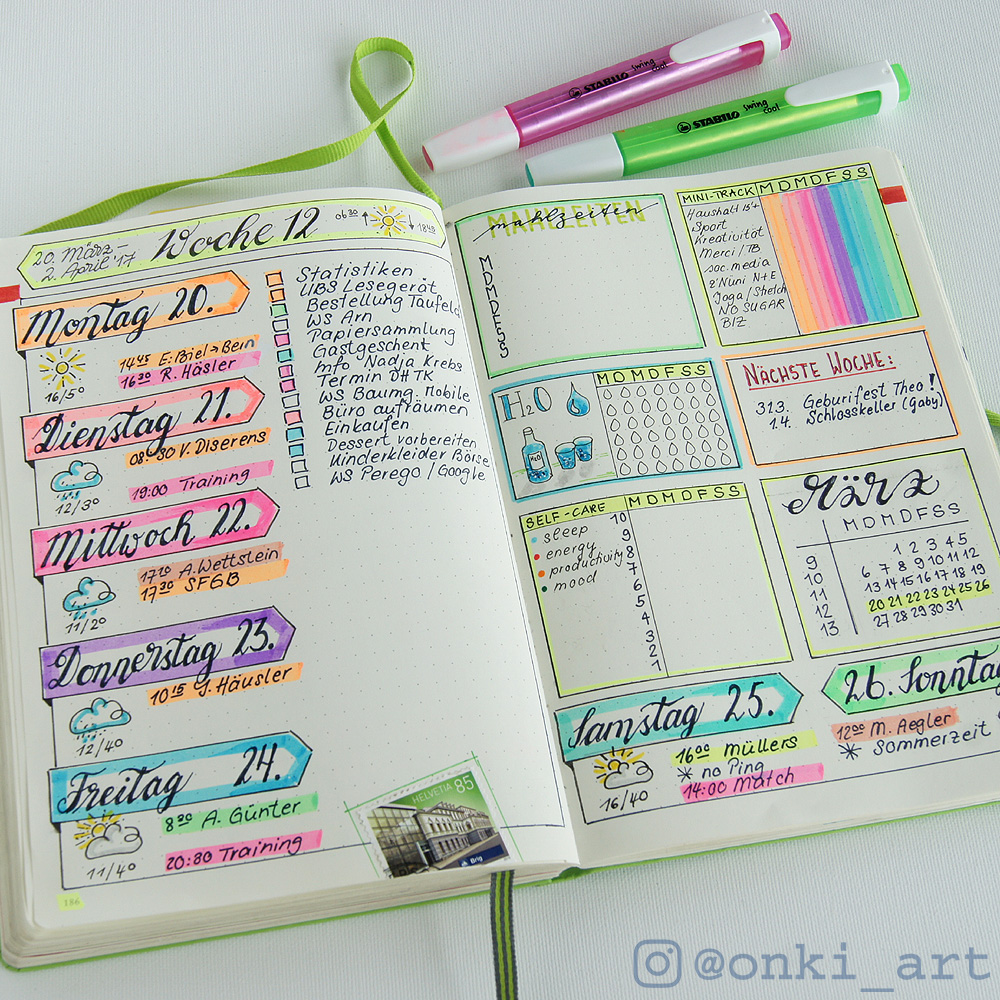 STABILO swing cool
STABILO swing cool
20. März –
2. April '17
Woche 12
06 30
18 48
Montag 20.
16/5°
14 45 E: Biel → Bern
16 30 R. Häsler
Dienstag 21.
12/3°
08:30 V. Diserens
19:00 Training
Mittwoch 22.
11/20
17 10 A. Wettstein
17 30 SFGB
Donnerstag 23.
12/40
10 15 J. Häusler
Freitag 24.
11/40
8 30 A. Günter
20:30 Training
186
Statistiken
UBS Lesegerät
Bestellung Täufeld
WS Arn
Papiersammlung
Gastgeschent
Mfo Nadja Krebs
Termin DHTK
WS Baumg. Mobile
Büro aufräumen
Einkaufen
Dessert vorbereiten
Kinderkleider Börse
WS Perego / Google
HELVETIA 85
Brig
MAHLZEITEN
mahlzeiten
M
D
M
D
F
S
S
MINI-TRACK MDMDFSS
Haushalt 15'
Sport
Kreativität
Merci / TB
soc. media
z'Nüni N+E
Yoga / Stretch
NO SUGAR
BIZ
H2O
MDMDFSS
H2O
NÄCHSTE WOCHE:
31.3. Geburifest Theo!
1.4. Schlosskeller (Gaby)
SELF-CARE MDMDFSS
sleep
energy
productivity
mood
10
9
8
7
6
5
4
3
2
1
März
MDMDFSS
9 1 2 3 4 5
10 6 7 8 9 10 11 12
11 13 14 15 16 17 18 19
12 20 21 22 23 24 25 26
13 27 28 29 30 31
Samstag 25.
16/40
16 00 Müllers
* no Ping
14:00 Match
26. Sonntag
12 00 M. Aegler
* Sommerzeit
@onki_art